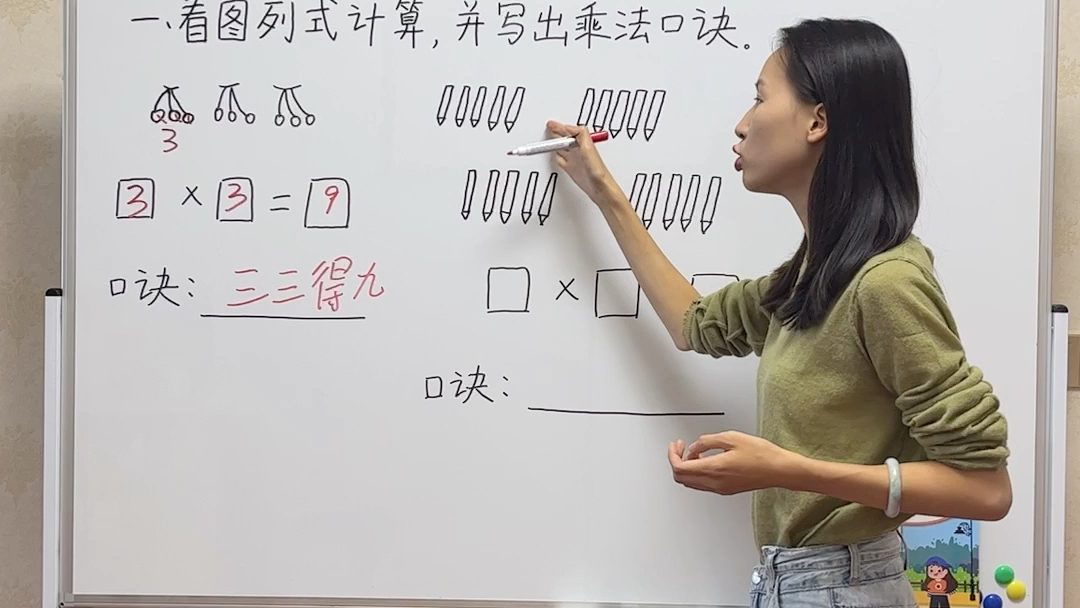 一、看图列式计算,并写出乘法口诀。
3
3 × 3 = 9
口诀: 三三得九
×
口诀: